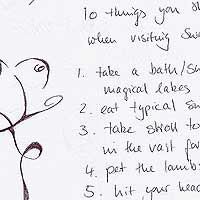 10 things you
when visiting
1. take a bath/
magical lakes
2. eat typical
3. take stroll
in the vast
4. pet the lambs
5. hit your head